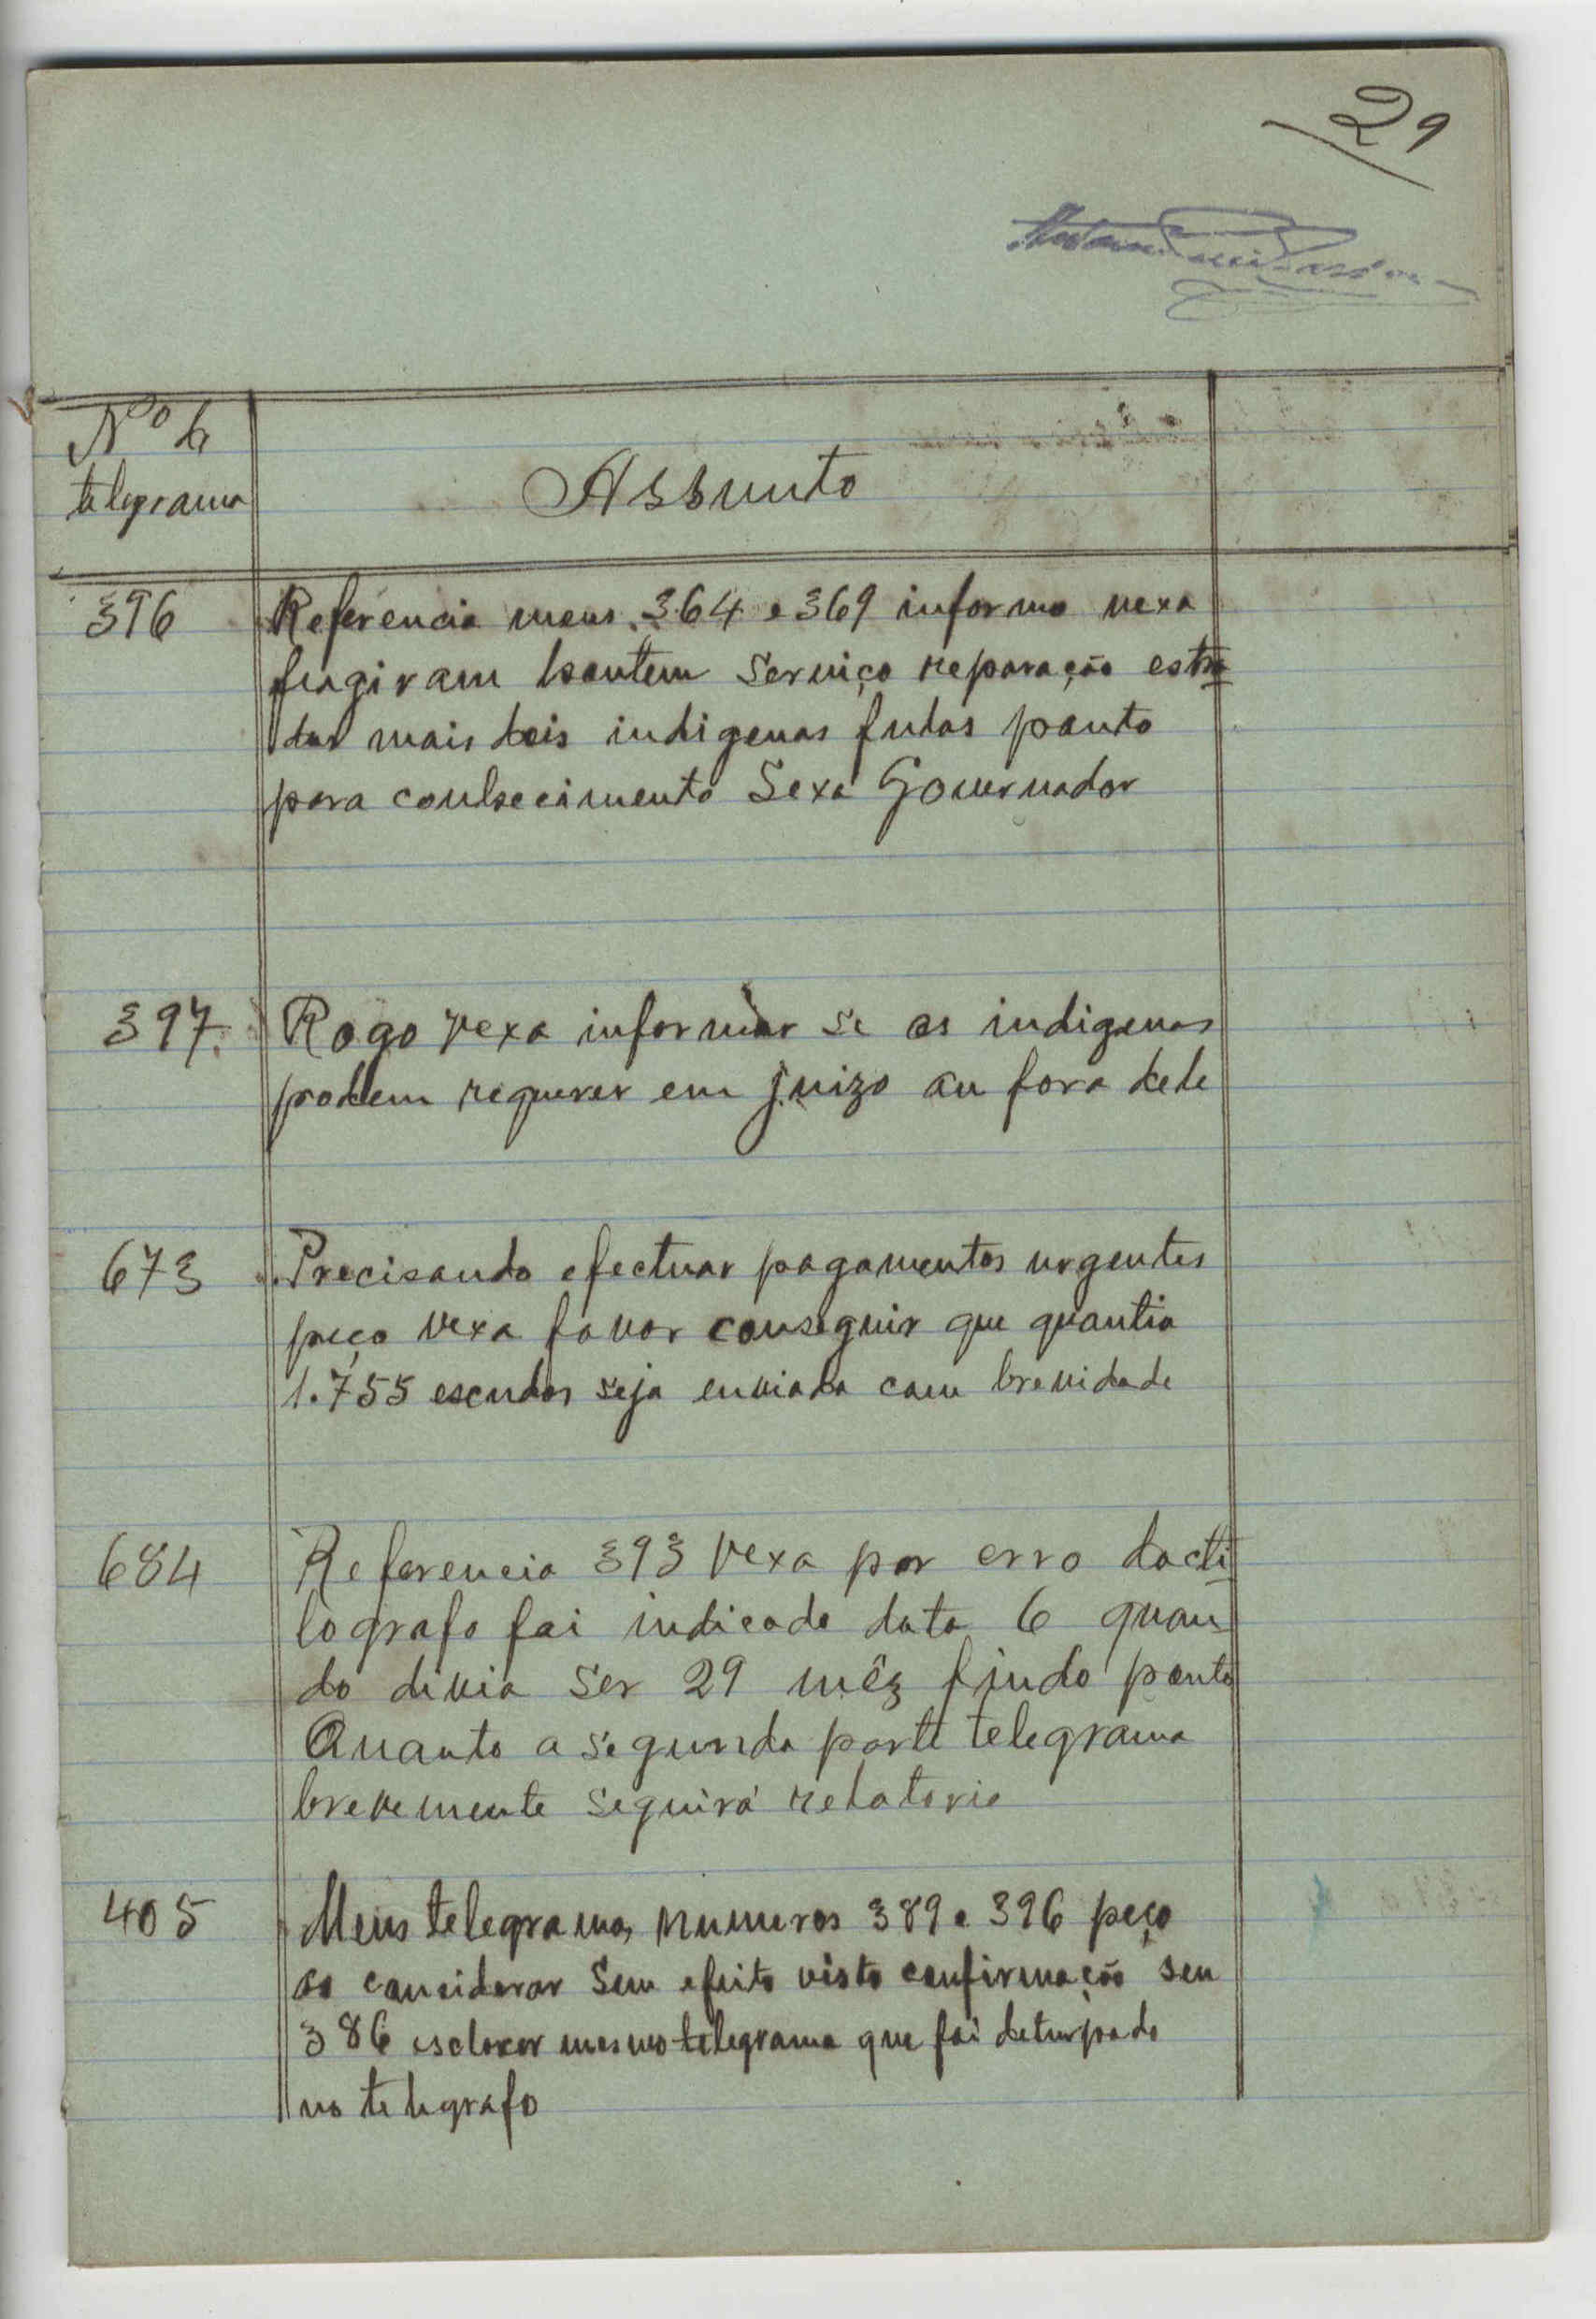 29
Nº de
telegrama
Assunto
396
Referencia meus 364 e 369 informo vexa
fugiram hontem serviço reparação estra-
das mais dois indigenas fulas ponto
para conhecimento Sexa Governador
397.
Rogo vexa informar se os indigenas
podem requerer em juizo ou fora dele
673
Precisando efectuar pagamentos urgentes
peço vexa favor conseguir que quantia
1.755 escudos seja enviada com brevidade
684
Referencia 393 vexa por erro dacti-
lografo foi indicado data 6 quan-
do divia ser 29 mêz findo ponto
Quanto a segunda parte telegrama
brevemente seguirá relatorio
405
Meus telegramas numeros 389 e 396 peço
os considerar sem efeito visto confirmação seu
386 esclarecer mesmo telegrama que foi deturpado
no telegrafo